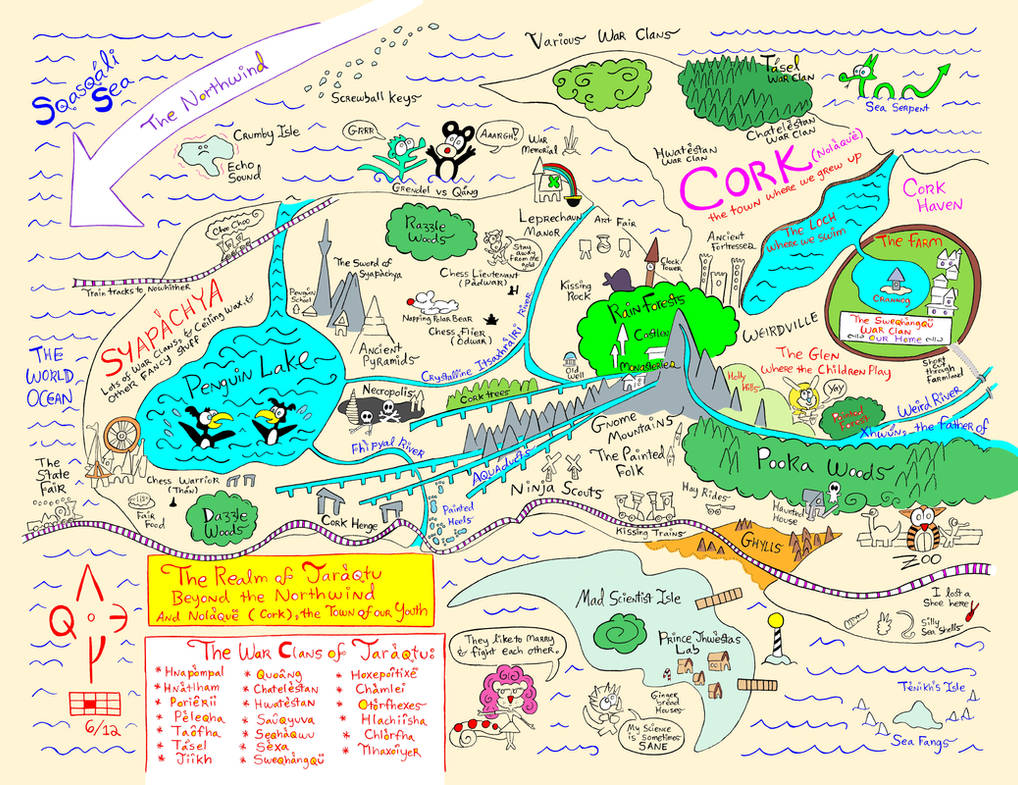 Sqasqáli
Sea
The Northwind
Screwball Keys
Various War Clans
Tásel
War Clan
Sea Serpent
Chatelèstan
War Clan
Crumby Isle
Echo
Sound
GRRR
AAARGH!
War
Memorial
Grendel vs Qáng
Hwatèstan
War Clan
CORK
(Nolàquë)
the town where we grew up
Cork
Haven
Choo Choo
Train tracks to Nowhither
Razzle
Woods
Stay
away
from the
gold
Leprechaun
Manor
Art Fair
Ancient
Fortresses
The Loch
where we swim
The Farm
Crannog
The Sweqhàngqü
War Clan
Our Home
Penguin
School
The Sword of
Syapàchya
Chess Lieutenant
(Pàdwar)
Clock
Tower
Kissing
Rock
SYAPÀCHYA
Lots of War Clans &
Other Fancy Stuff
Ceiling Wax &
Napping Polar Bear
Chess Flier
(Odwar)
Ancient
Pyramids
Crystalline Itsaxhrailri River
Rain Forests
Castles
Monasteries
Old
Well
Weirdville
The Glen
Where the Children Play
Yay
Holly
Hills
Painted
Forest
Short
Cut
through
Farmland
Weird River
Xhwùns, the Father of
The
World
Ocean
Penguin Lake
Necropolis
Cork Trees
Fhipyal River
Aquaducts
Gnome
Mountains
The Painted
Folk
Pooka Woods
The
State
Fair
Fair
Food
Chess Warrior
(Thàn)
Dazzle
Woods
Cork Henge
Painted
Heels
Ninja Scouts
Kissing Trains
Hay Rides
Haunted
House
Ghylls
Zoo
I lost a
Shoe here
Silly
Sea shells
The Realm of Taràqtu
Beyond the Northwind
And Nolàquë (Cork), the Town of our Youth
6/12
The War Clans of Taràqtu:
* Hnapòmpal
* Hnàttham
* Porièrii
* Pèleqha
* Taòfha
* Tàsel
* Jiikh
* Quoàng
* Chatelèstan
* Hwatèstan
* Saùqyuva
* Seqhàquu
* Sèxa
* Sweqhàngqü
* Hoxepoitìxë
* Chàmlei
* Otòrfhexes
* Hlachiìsha
* Chlòrfha
* Mhaxoìyer
Mad Scientist Isle
Prince Jhwèstas
Lab
They like to Marry
& fight each other.
Ginger
bread
Houses
My Science
is sometimes
SANE
Tènikh's Isle
Sea Fangs